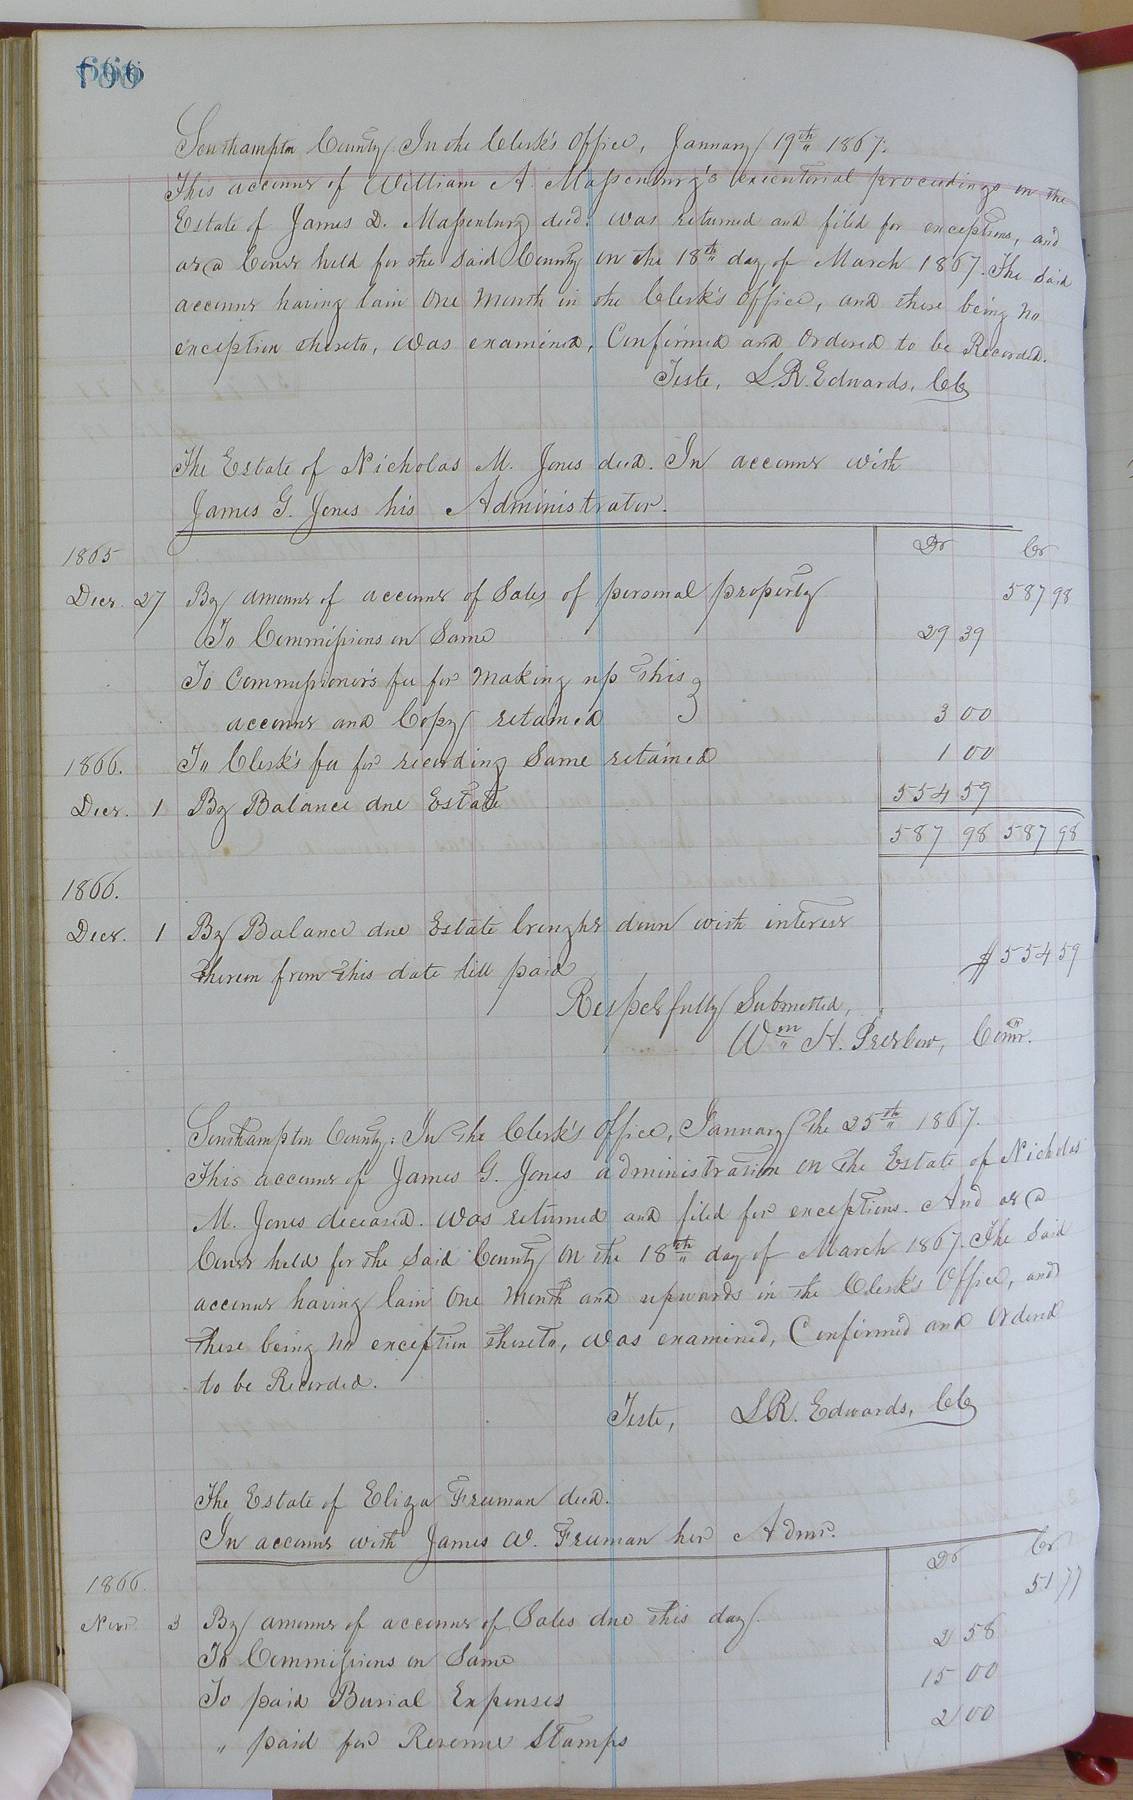 Southampton County. In the Clerk's Office, January 19th 1867.
This account of William A. Massenburg's executorial proceedings on the
Estate of James D. Massenburg decd. was returned and filed for exceptions, and
at a Court held for the said County on the 18th day of March 1867. The said
account having lain one month in the Clerk's Office, and there being no
exception thereto, was examined, Confirmed and Ordered to be Recorded.
Teste, L.R. Edwards, CC
The Estate of Nicholas M. Jones decd. In account with
James G. Jones his Administrator.
1865 Dr Cr
Decr. 27 By amount of account of Sales of personal property 587 98
To Commissions on Same 29 39
To Commissioner's fee for making up this
account and Copy retained 3 00
1866. To Clerk's fee for recording Same retained 1 00
Decr. 1 By Balance due Estate 554 59
587 98 587 98
1866.
Decr. 1 By Balance due Estate brought down with interest
thereon from this date till paid $554 59
Respectfully Submitted,
Wm H. Comr.
Southampton County: In the Clerk's Office, January the 25th 1867.
This account of James G. Jones administration on the Estate of Nicholas
M. Jones deceased. was returned and filed for exceptions. And at a
Court held for the said County on the 18th day of March 1867. The said
account having lain one month and upwards in the Clerk's Office, and
there being no exception thereto, was examined, Confirmed and Ordered
to be Recorded.
Teste, L.R. Edwards, CC
The Estate of Eliza Freeman decd.
In account with James W. Freeman her Admr.
Dr Cr
1866.
Novr 3 By amount of account of Sales due this day. 51 77
To Commissions on Same 2 58
To paid Burial Expenses 15 00
" paid for Revenue Stamps 2 00